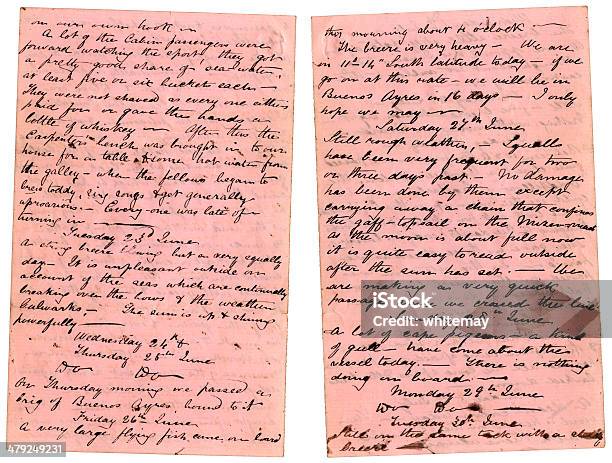 on our own hook in
A lot of the Cabin passengers were
forward watching the sport; they got
a pretty good share of sea water,
at least five or six buckets each —
They were not shaved as every one either
paid for or gave the hands a
bottle of whiskey — After this the
Carpenter's bench was brought in to our
house for a table & some hot water from
the galley — when the fellows began to
brew toddy, sing songs & get generally
uproarious — Every one was late of
turning in —
Tuesday 23d June
a strong breeze but a very squally
day — It is unpleasant outside on
account of the seas which are continually
breaking over the bows & the weather
bulwarks — The sun is up & shining
powerfully —
Wednesday 24th &
Thursday 25th June
Do Do
On Thursday morning we passed a
brig of Buenos Ayres, bound to it
Friday 26th June
A very large flying fish came on board
this morning about 4 o'clock —
The breeze is very heavy — We are
in 11° 14" South latitude today — if we
go on at this rate — we will be in
Buenos Ayres in 16 days — I only
hope we may —
Saturday 27th June
Still rough weather, — Squalls
have been very frequent for two
or three days past — No damage
has been done by them except
carrying away a chain that confines
the gaff-topsail on the Mizen-mast
as the moon is about full now
it is quite easy to read outside
after the sun has set — We
are making a very quick
passage we crossed the line
June
A lot of Cape pigeons — a kind
of gull — have come about the
vessel today — There is nothing
doing on board.
Monday 29th June
Do Do
Tuesday 30th June
Still on the same tack with a
breeze
iStock
Credit: whitemay
479249231